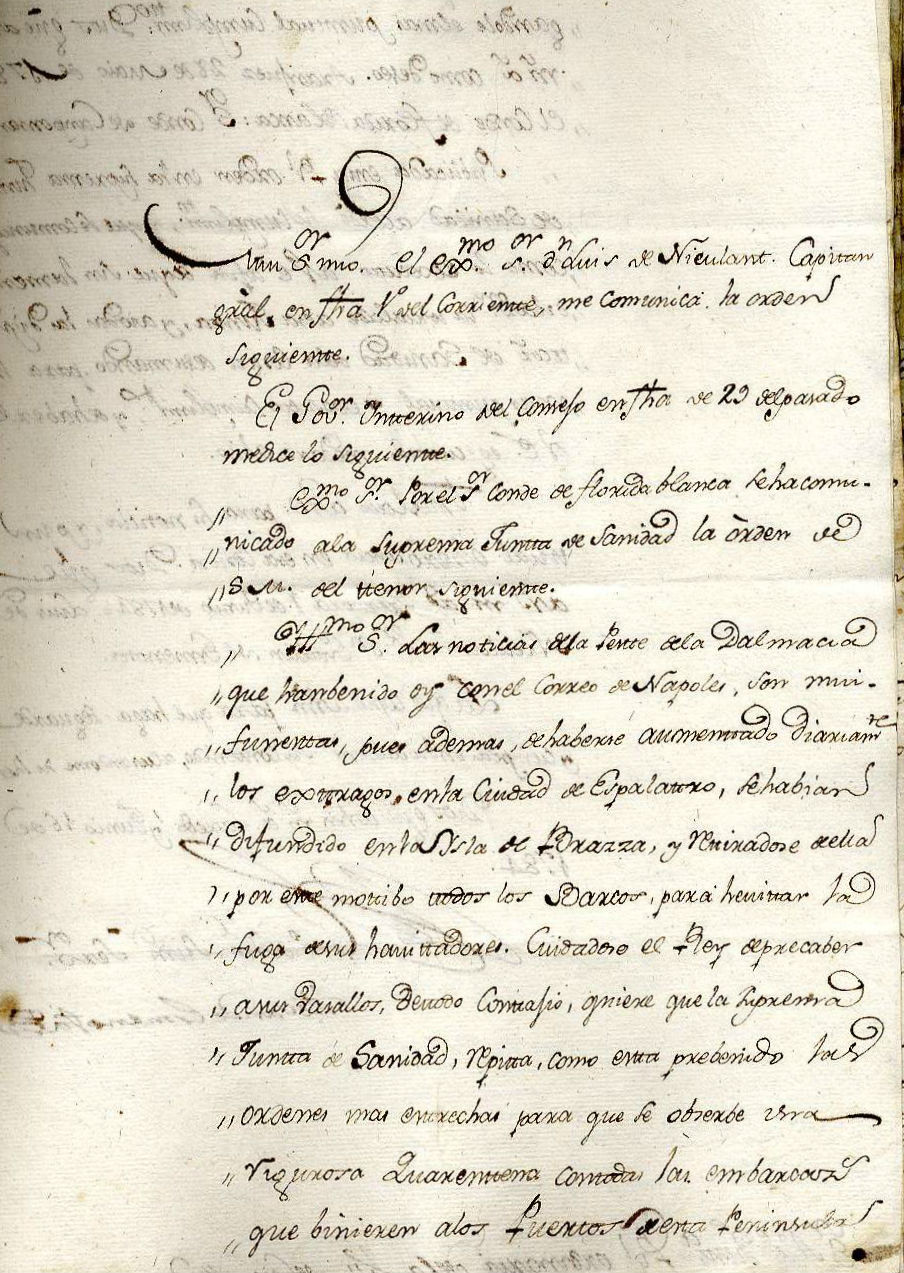 Muy Sor mio. El Exmo Sor Dn Luis de Nieulant. Capitan
gral. en fha 1o del Corriente, me comunica la orden
siguiente.
El Govor Intterino del Consejo en fha de 29 del pasado
me dice lo siguiente.
,, Exmo Sor Por el Sor Conde de florida blanca se ha comu-
,, nicado a la Suprema Juntta de Sanidad la òrden de
,, S M. del ttenor siguiente.
,, Illmo Sor Las noticias de la Peste de la Dalmacia
,, que han benido oy con el Correo de Napoles, son mui
,, funestas, pues ademas, de haberse aumenttado diariamte
,, los exttragos, en la Ciudad de Espalattro, se habian
,, difundido en la Ysla de Brazza, y Retiradose de ella
,, por este mottibo ttodos los Barcos, para hevittar la
,, fuga de sus havittadores. Cuidadoso el Rey de precaber
,, a sus Vasallos, de ttodo Conttasio, quiere que la Suprema
,, Juntta de Sanidad, Repitta, como estta prebenido las
,, ordenes mas estrechas para que se obserbe una
,, Vigurosa Quarenttena con ttodas las embarcazs
,, que binieren a los Puerttos de esta Peninsula